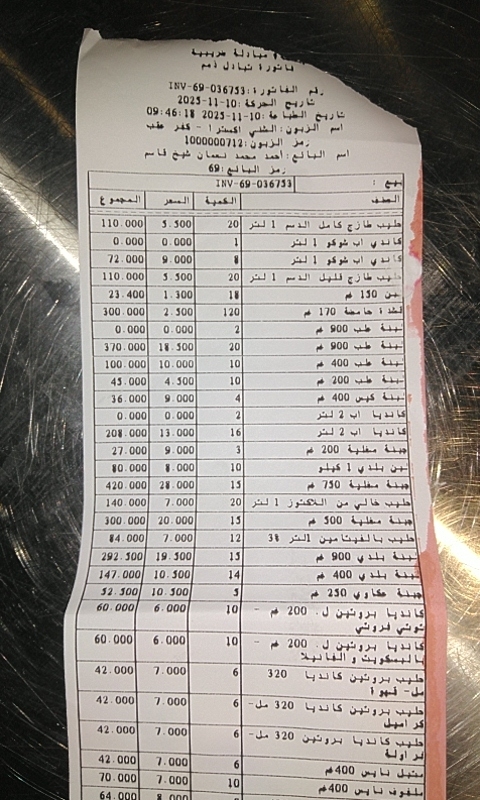 مبادلة ضريبية
فاتورة تبادل ذمم
رقم الفاتورة:INV-69-036753
تاريخ الحركة:10-11-2025
تاريخ الطباعة:10-11-2025 09:46:18
اسم الزبون: الشني اكسترا - كفر عقب
رمز الزبون:1000000712
اسم البائع: أحمد محمد نعمان شيخ قاسم
رمز البائع:69
بيع : INV-69-036753
الصنف الكمية السعر المجموع
حليب طازج كامل الدسم 1 لتر 20 5.500 110.000
كاندي اب شوكو 1 لتر 1 0.000 0.000
كاندي اب شوكو 1 لتر 8 9.000 72.000
حليب طازج قليل الدسم 1 لتر 20 5.500 110.000
لبن 150 غم 18 1.300 23.400
قشدة حامضة 170 غم 120 2.500 300.000
لبنة علب 900 غم 2 0.000 0.000
لبنة علب 900 غم 20 18.500 370.000
لبنة علب 400 غم 10 10.000 100.000
لبنة علب 200 غم 10 4.500 45.000
لبنة كيس 400 غم 4 9.000 36.000
كانديا اب 2 لتر 2 0.000 0.000
كانديا اب 2 لتر 16 13.000 208.000
جبنة مغلية 200 غم 3 9.000 27.000
لبن بلدي 1 كيلو 10 8.000 80.000
جبنة مغلية 750 غم 15 28.000 420.000
حليب خالي من اللاكتوز 1 لتر 20 7.000 140.000
جبنة مغلية 500 غم 15 20.000 300.000
حليب بالفيتامين 1لتر 3% 12 7.000 84.000
لبنة بلدي 900 غم 15 19.500 292.500
لبنة بلدي 400 غم 14 10.500 147.000
جبنة عكاوي 250 غم 5 10.500 52.500
كانديا بروتين ل. 200 غم - 10 6.000 60.000
توتي فروتي
كانديا بروتين ل. 200 غم - 10 6.000 60.000
بالبسكويت والفانيلا
حليب بروتين كانديا 320 6 7.000 42.000
مل- قهوة
حليب بروتين كانديا 320 مل- 6 7.000 42.000
كراميل
حليب كانديا بروتين 320 مل- 6 7.000 42.000
فراولة
متبل نايس 400غم 6 7.000 42.000
ملفوف نايس 400غم 10 7.000 70.000
8 8.000 64.000